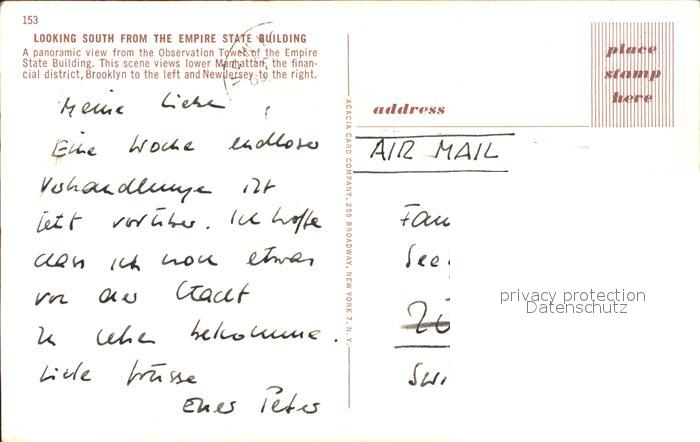 153
LOOKING SOUTH FROM THE EMPIRE STATE BUILDING
A panoramic view from the Observation Tower of the Empire
State Building. This scene views lower Manhattan, the finan-
cial district, Brooklyn to the left and New Jersey to the right.
Meine Liebe,
Eine Woche endloser
Verhandlungen ist
jetzt vorüber. Ich hoffe
dass ich noch etwas
von der Stadt
zu sehen bekomme.
Liebe Grüsse
Euer Peter
ACACIA CARD COMPANY, 288 BROADWAY, NEW YORK 7, N. Y.
place
stamp
here
address
AIR MAIL
Fam
See
Zü
Swi
privacy protection
Datenschutz